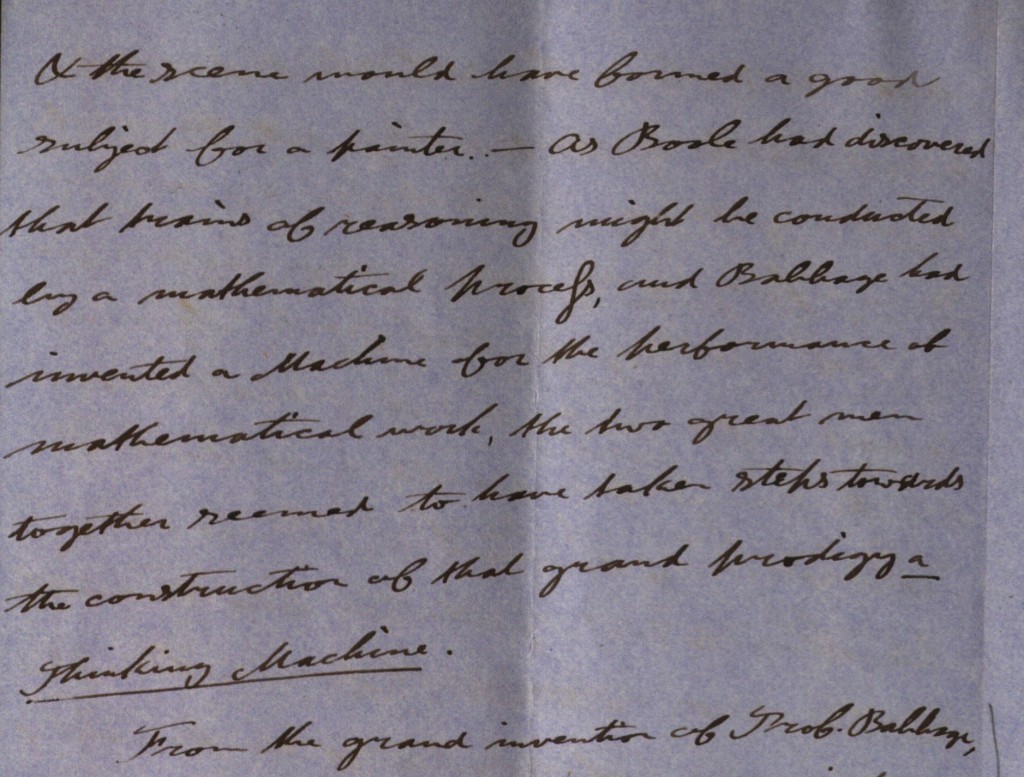 & the scene would have formed a good
subject for a painter. — As Boole had discovered
that trains of reasoning might be conducted
by a mathematical process, and Babbage had
invented a Machine for the performance of
mathematical work, the two great men
together seemed to have taken steps towards
the construction of that grand prodigy a
Thinking Machine.
From the grand invention of Prof. Babbage,